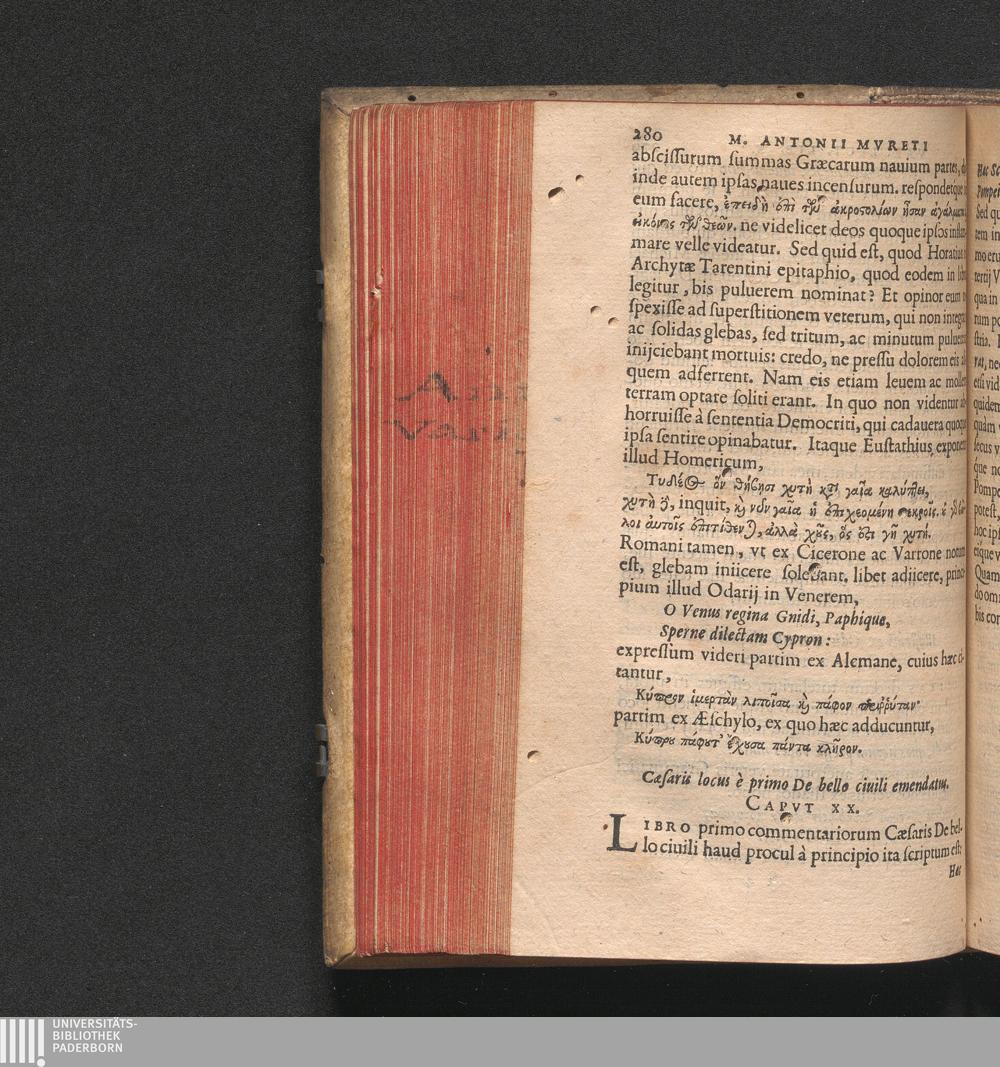 280 M. ANTONII MVRETI
abſciſſurum ſummas Græcarum nauium partes,
inde autem ipſas naues incenſurum. reſpondetque
eum facere, ἐπειδὴ ὅτι τῶν ἀκροστολίων ἦσαν ἀγάλματα
εἰκόνες τῶν θεῶν. ne videlicet deos quoque ipſos
mare velle videatur. Sed quid eſt, quod Horatius
Archytæ Tarentini epitaphio, quod eodem in
legitur, bis puluerem nominat? Et opinor eum
ſpexiſſe ad ſuperſtitionem veterum, qui non
ac ſolidas glebas, ſed tritum, ac minutum
inijciebant mortuis: credo, ne preſſu dolorem eis
quem adferrent. Nam eis etiam leuem ac
terram optare ſoliti erant. In quo non videntur
horruiſſe à ſententia Democriti, qui cadauera
ipſa ſentire opinabatur. Itaque Euſtathius
illud Homericum,
Τυδέος ὃν θήβησι χυτὴ κατὰ γαῖα καλύπτει,
χυτὴ δὲ, inquit, καὶ νῦν γαῖα ἡ ἐπιχεομένη νεκροῖς.
αὐτοῖς ἐπιτίθενται, ἀλλὰ χοῦς, ὅς ἐστι γῆ χυτή.
Romani tamen, vt ex Cicerone ac Varrone
eſt, glebam iniicere ſolebant. libet adiicere, princi-
pium illud Odarij in Venerem,
O Venus regina Gnidi, Paphique,
Sperne dilectam Cypron:
expreſſum videri partim ex Alemane, cuius hæc ci-
tantur,
Κύπρον ἱμερτὰν λιποῖσα καὶ πάφον περιῤῥύταν·
partim ex Æſchylo, ex quo hæc adducuntur,
Κύπρου πάφου τ᾽ ἔχουσα πάντα κλῆρον.
Cæſaris locus è primo De bello ciuili emendatus.
CAPVT XX.
LIBRO primo commentariorum Cæſaris De bel-
lo ciuili haud procul à principio ita ſcriptum eſt:
Hæc
UNIVERSITÄTS-
BIBLIOTHEK
PADERBORN